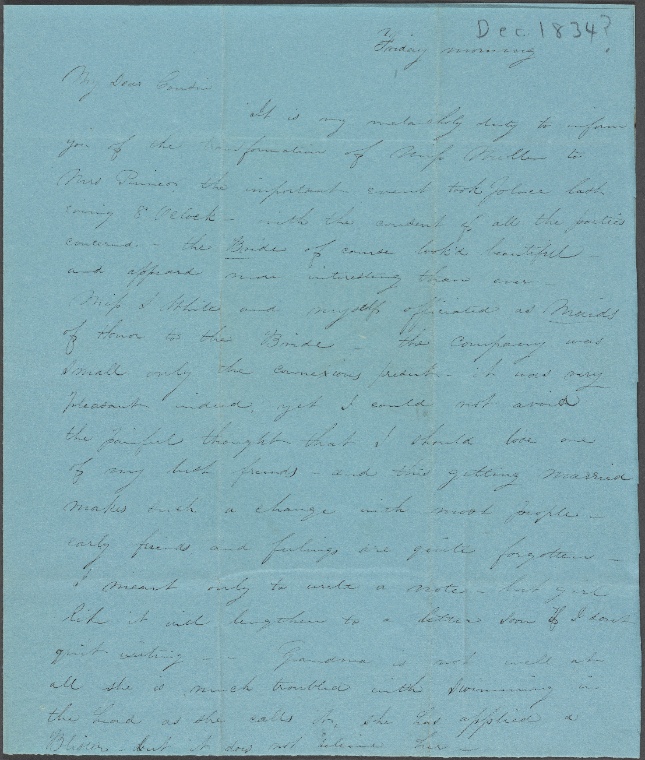 Dec 1834?
Friday morning
My Dear Cousin
It is my melancholy duty to inform
you of the transformation of Miss Miller to
Mrs the important event took place last
evning 8 Oclock - with the consent of all the parties
concerned - the Bride of course look'd beautiful -
and appeard more interesting than ever -
Miss J White and myself officiated as Maids
of Honor to the Bride - the Company was
small only the connexions present - it was very
pleasant indeed, yet I could not avoid
the painful thought that I should lose one
of my best friends - and this getting married
makes such a change with most people -
early friends and feelings are quite forgotten -
I meant only to write a note - but
like it will lengthen to a letter soon If I dont
quit writing - - Grandma is not well at
all she is much troubled with swimming in
the head as she calls it, she has applied a
Blister - but it does not relieve her -